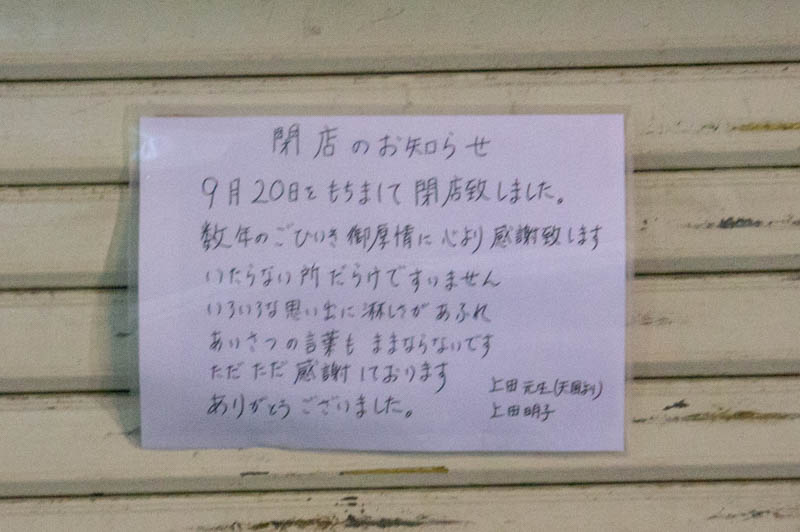 閉店のお知らせ
9月20日をもちまして閉店致しました。
数年のごひいき御厚情に心より感謝致します
いたらない所だらけですいません
いろいろな思い出に淋しさがあふれ
あいさつの言葉もままならないです
ただただ感謝しております
ありがとうございました。
上田元生(天国より)
上田明子